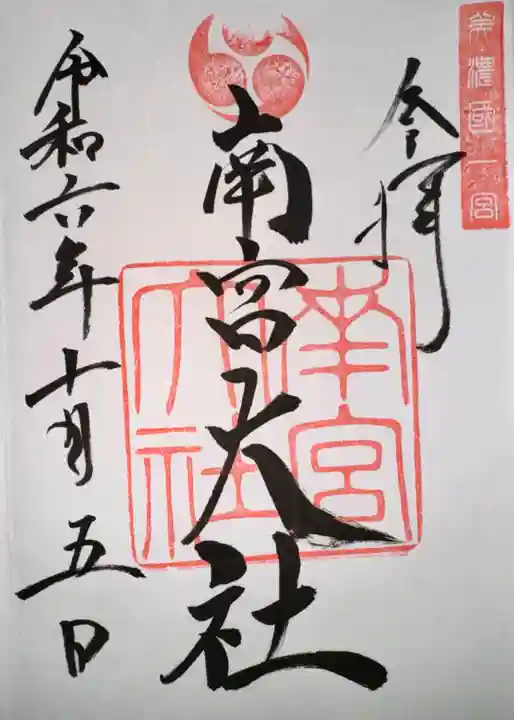 美濃國一宮
奉拝
南宮大社
南宮
大社
令和六年十月五日